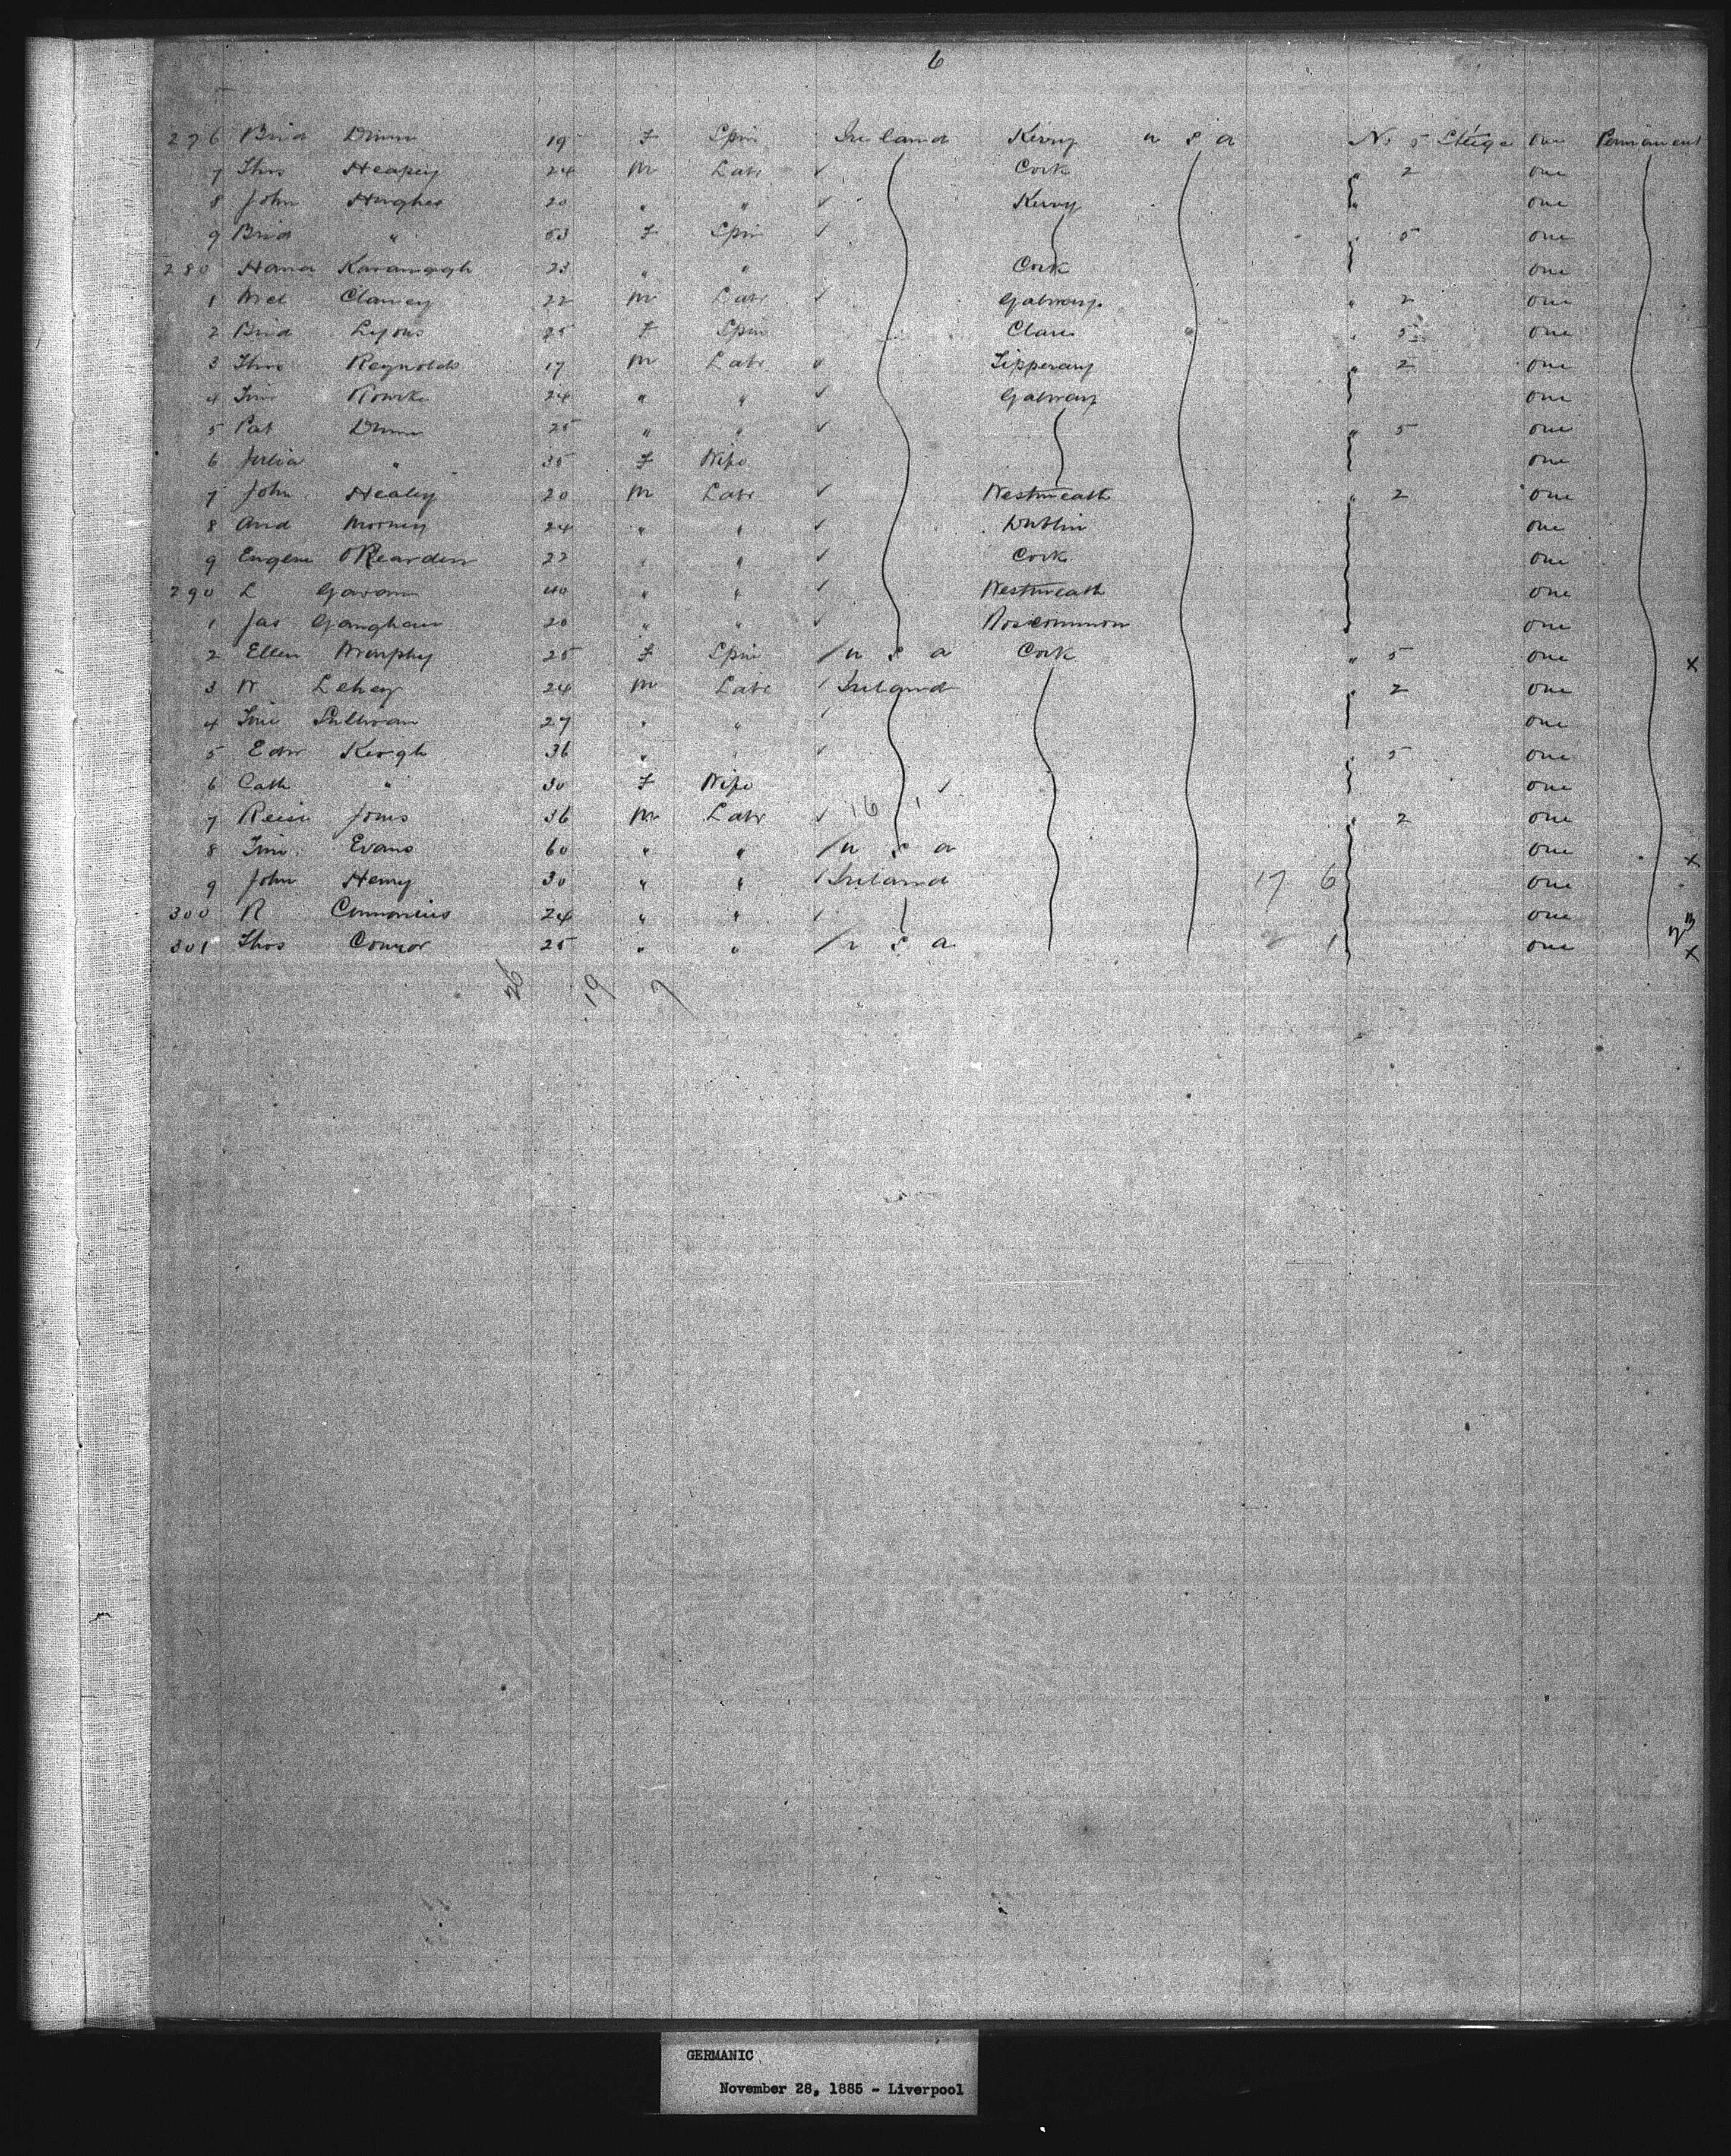 6
276 Brid Dunn 19 F Spin Ireland Kerry U S A No 5 Steige one Permanent
7 Thos Heapey 24 M Labr ✓ Cork " 2 one
8 John Hughes 20 " " ✓ Kerry " one
9 Brid " 53 F Spin ✓ " 5 one
280 Hana Kavanagh 23 " " Cork one
1 Mcl Clancy 22 M Labr ✓ Galway " 2 one
2 Brid Lyons 25 F Spin Clare " 5 one
3 Thos Reynolds 17 M Labr ✓ Tipperary " 2 one
4 Tim Rourke 24 " " ✓ Galway one
5 Pat Dunn 25 " " ✓ " 5 one
6 Julia " 35 F Wife one
7 John Healey 20 M Labr ✓ Westmeath " 2 one
8 And Mooney 24 " " ✓ Dublin one
9 Eugene O'Rearden 22 " " ✓ Cork one
290 L Gavan 40 " " ✓ Westmeath one
1 Jas Gaughan 20 " " ✓ Roscommon one
2 Ellen Murphy 25 F Spin / U S A Cork " 5 one x
3 W Lehey 24 M Labr / Ireland " 2 one
4 Tim Sullivan 27 " " / one
5 Edw Keogh 36 " " ✓ " 5 one
6 Cath " 30 F Wife ✓ one
7 Jones 36 M Labr ✓ 16 1 " 2 one
8 Tim Evans 60 " " / U S A one x
9 John Henry 30 " " / Ireland 17 6 one
300 R Commonius 24 " " / one
301 Thos Connor 25 " " / U S A 2 1 one x
26 19 7
GERMANIC
November 28, 1885 - Liverpool